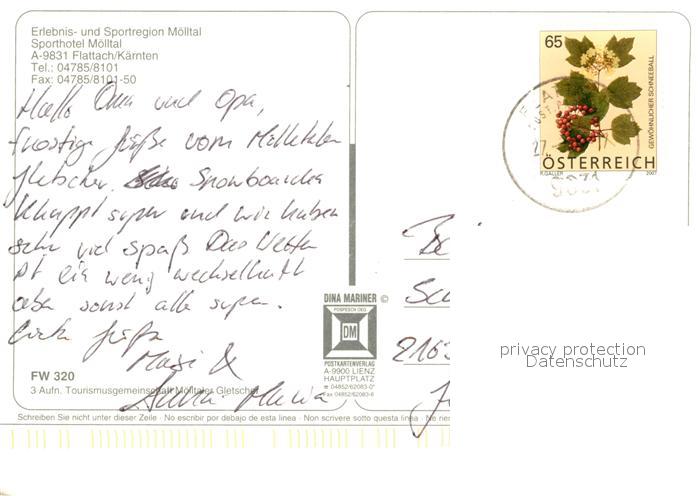 Erlebnis- und Sportregion Mölltal
Sporthotel Mölltal
A-9831 Flattach/Kärnten
Tel.: 04785/8101
Fax: 04785/8101-50
Hallo Oma und Opa,
frostige Grüße vom Mölltaler
Gletscher. Snowboarden
klappt super und wir haben
sehr viel Spaß. Das Wetter
ist ein wenig wechselhaft
aber sonst alles super.
Liebe Grüße
&
Anna Maria
FW 320
3 Aufn. Tourismusgemeinschaft Mölltaler Gletscher
DINA MARINER ©
POSPESCH OEG
DM
POSTKARTENVERLAG
A-9900 LIENZ
HAUPTPLATZ
☎ 04852/62083-0*
Fax 04852/62083-6
Schreiben Sie nicht unter dieser Zeile · No escribir por debajo de esta linea · Non scrivere sotto questa linea · Ne
65
GEWÖHNLICHER SCHNEEBALL
ÖSTERREICH
2007
privacy protection
Datenschutz